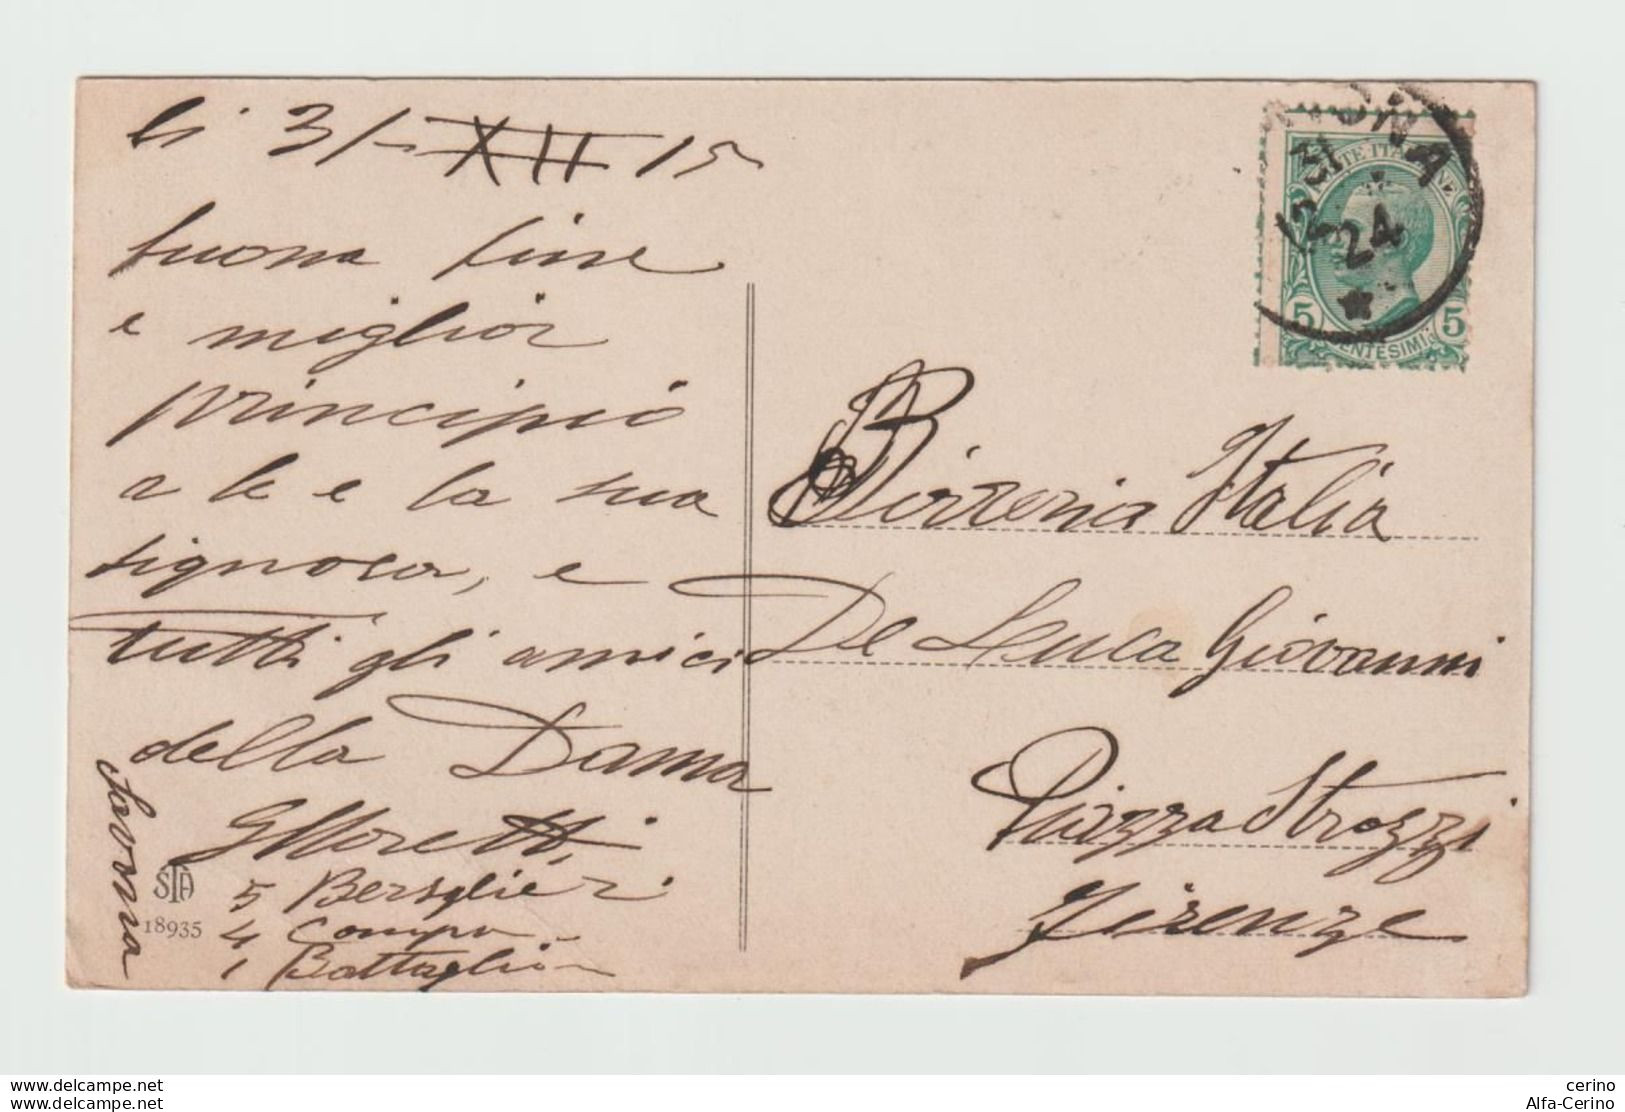 li 31-XII 15
buona fine
e miglior
principio
a le e la sua
signora, e
tutti gli amici
della Dama
G Moretti
5 Berseglieri
4 Compa
1 Battaglion
Savona
STA
18935
POSTE ITALIANE
24
5 CENTESIMI 5
Birreria Italia
De Leuca Giovanni
Piazza Strozzi
Firenze
www.delcampe.net
www.delcampe.net
cerino
Alfa-Cerino